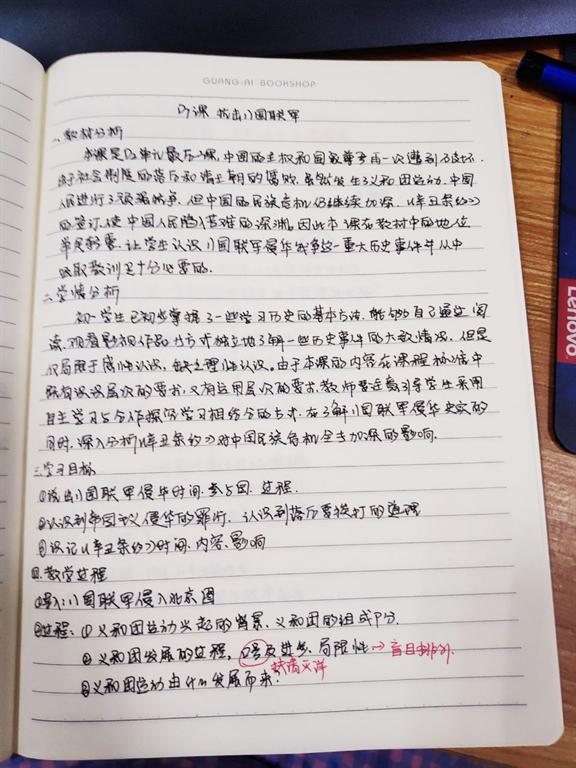 GUANG-AI BOOKSHOP
课 抗击八国联军
一、教材分析
本课是单元最后一课,中国的主权和国家尊严再一次遭到破坏.
由于社会制度的落后和清王朝的腐败,虽然发生了义和团运动,中国
人民进行了顽强抗争,但中国的民族危机仍继续加深,《辛丑条约》
的签订,使中国人民陷入苦难的深渊,因此本课在教材中的地位
举足轻重,让学生认识八国联军侵华战争这一重大历史事件并从中
吸取教训是十分必要的.
二、学情分析
初一学生已初步掌握了一些学习历史的基本方法,能够自己通过阅
读、观看影视作品等方式独立地了解一些历史事件的大致情况,但是
仅局限于感性认识,缺乏理性认识。由于本课的内容在课程标准中
既有识记层次的要求,又有运用层次的要求,教师要注意引导学生采用
自主学习与合作探究学习相结合的方式,在了解八国联军侵华史实的
同时,深入分析《辛丑条约》对中国民族危机全面加深的影响.
三、学习目标
①说出八国联军侵华时间、参与国、过程.
②认识到帝国主义侵华的罪行,认识到落后要挨打的道理
③识记《辛丑条约》时间、内容、影响
四、教学过程
①导入:八国联军侵入北京图
②过程:①义和团运动兴起的背景、义和团的组成部分.
②义和团发展的过程,口号及进步、局限性→盲目排外.
扶清灭洋
③义和团运动由什么发展而来?
Lenovo